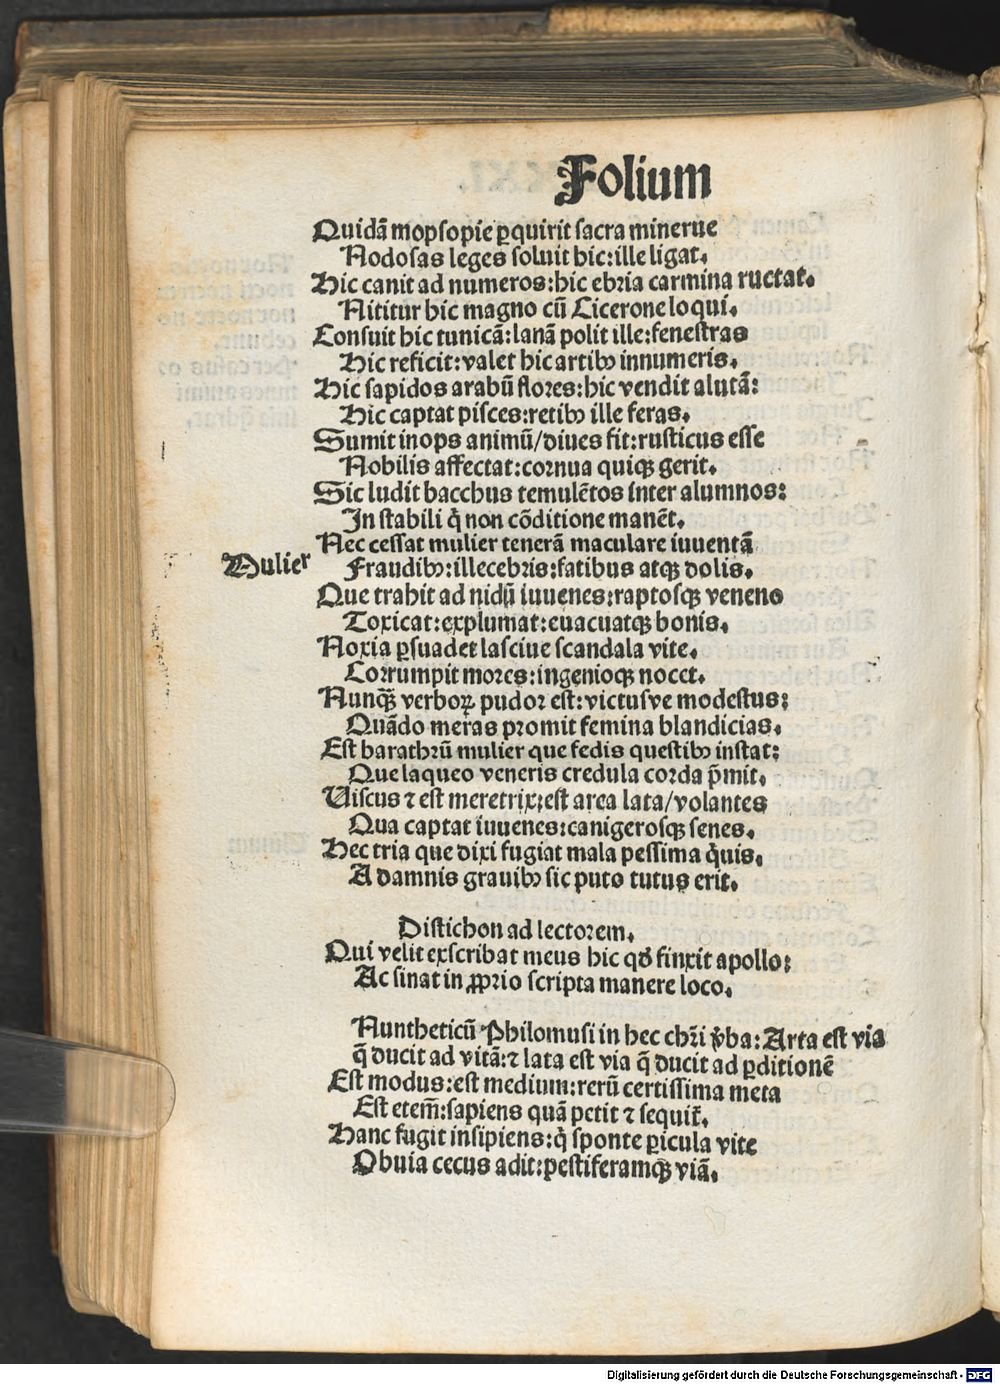 Folium
Quidã mopsopie ꝑquirit sacra minerue
Nodosas leges soluit hic: ille ligat.
Hic canit ad numeros: hic ebria carmina ructat.
Nititur hic magno cũ Cicerone loqui.
Consuit hic tunicã: lanã polit ille: fenestras
Hic reficit: valet hic artibꝰ innumeris.
Hic sapidos arabũ flores: hic vendit alutã:
Hic captat pisces: retibꝰ ille feras.
Sumit inops animũ/diues fit: rusticus esse
Nobilis affectat: cornua quiqꝫ gerit.
Sic ludit bacchus temulẽtos inter alumnos:
In stabili q̇ non cõditione manẽt.
Nec cessat mulier tenerã maculare iuuentã
Mulier
Fraudibꝰ: illecebris: fatibus atqꝫ dolis.
Que trahit ad nidũ iuuenes: raptosqꝫ veneno
Toxicat: explumat: euacuatqꝫ bonis.
Noxia ꝑsuadet lasciue scandala vite.
Corrumpit mores: ingenioqꝫ nocet.
Nunqꝫ̃ verboꝝ pudor est: victusve modestus:
Quãdo meras promit femina blandicias.
Est barathrũ mulier que fedis questibꝰ instat:
Que laqueo veneris credula corda p̃mit.
Uiscus ⁊ est meretrix: est area lata/volantes
Qua captat iuuenes: canigerosqꝫ senes.
Hec tria que dixi fugiat mala pessima q̇uis.
A damnis grauibꝰ sic puto tutus erit.
Distichon ad lectorem.
Qui velit exscribat meus hic qđ finxit apollo:
Ac sinat in ꝓprio scripta manere loco.
Nuntheticũ Philomusi in hec chr̃i v̓ba: Arta est via
q̃ ducit ad vitã: ⁊ lata est via q̃ ducit ad ꝑditionẽ
Est modus: est medium: rerũ certissima meta
Est etem̃: sapiens quã petit ⁊ sequit᷑.
Hanc fugit insipiens: q̇ sponte ꝑicula vite
Obuia cecus adit: pestiferamqꝫ viã.
Digitalisierung gefördert durch die Deutsche Forschungsgemeinschaft - DFG